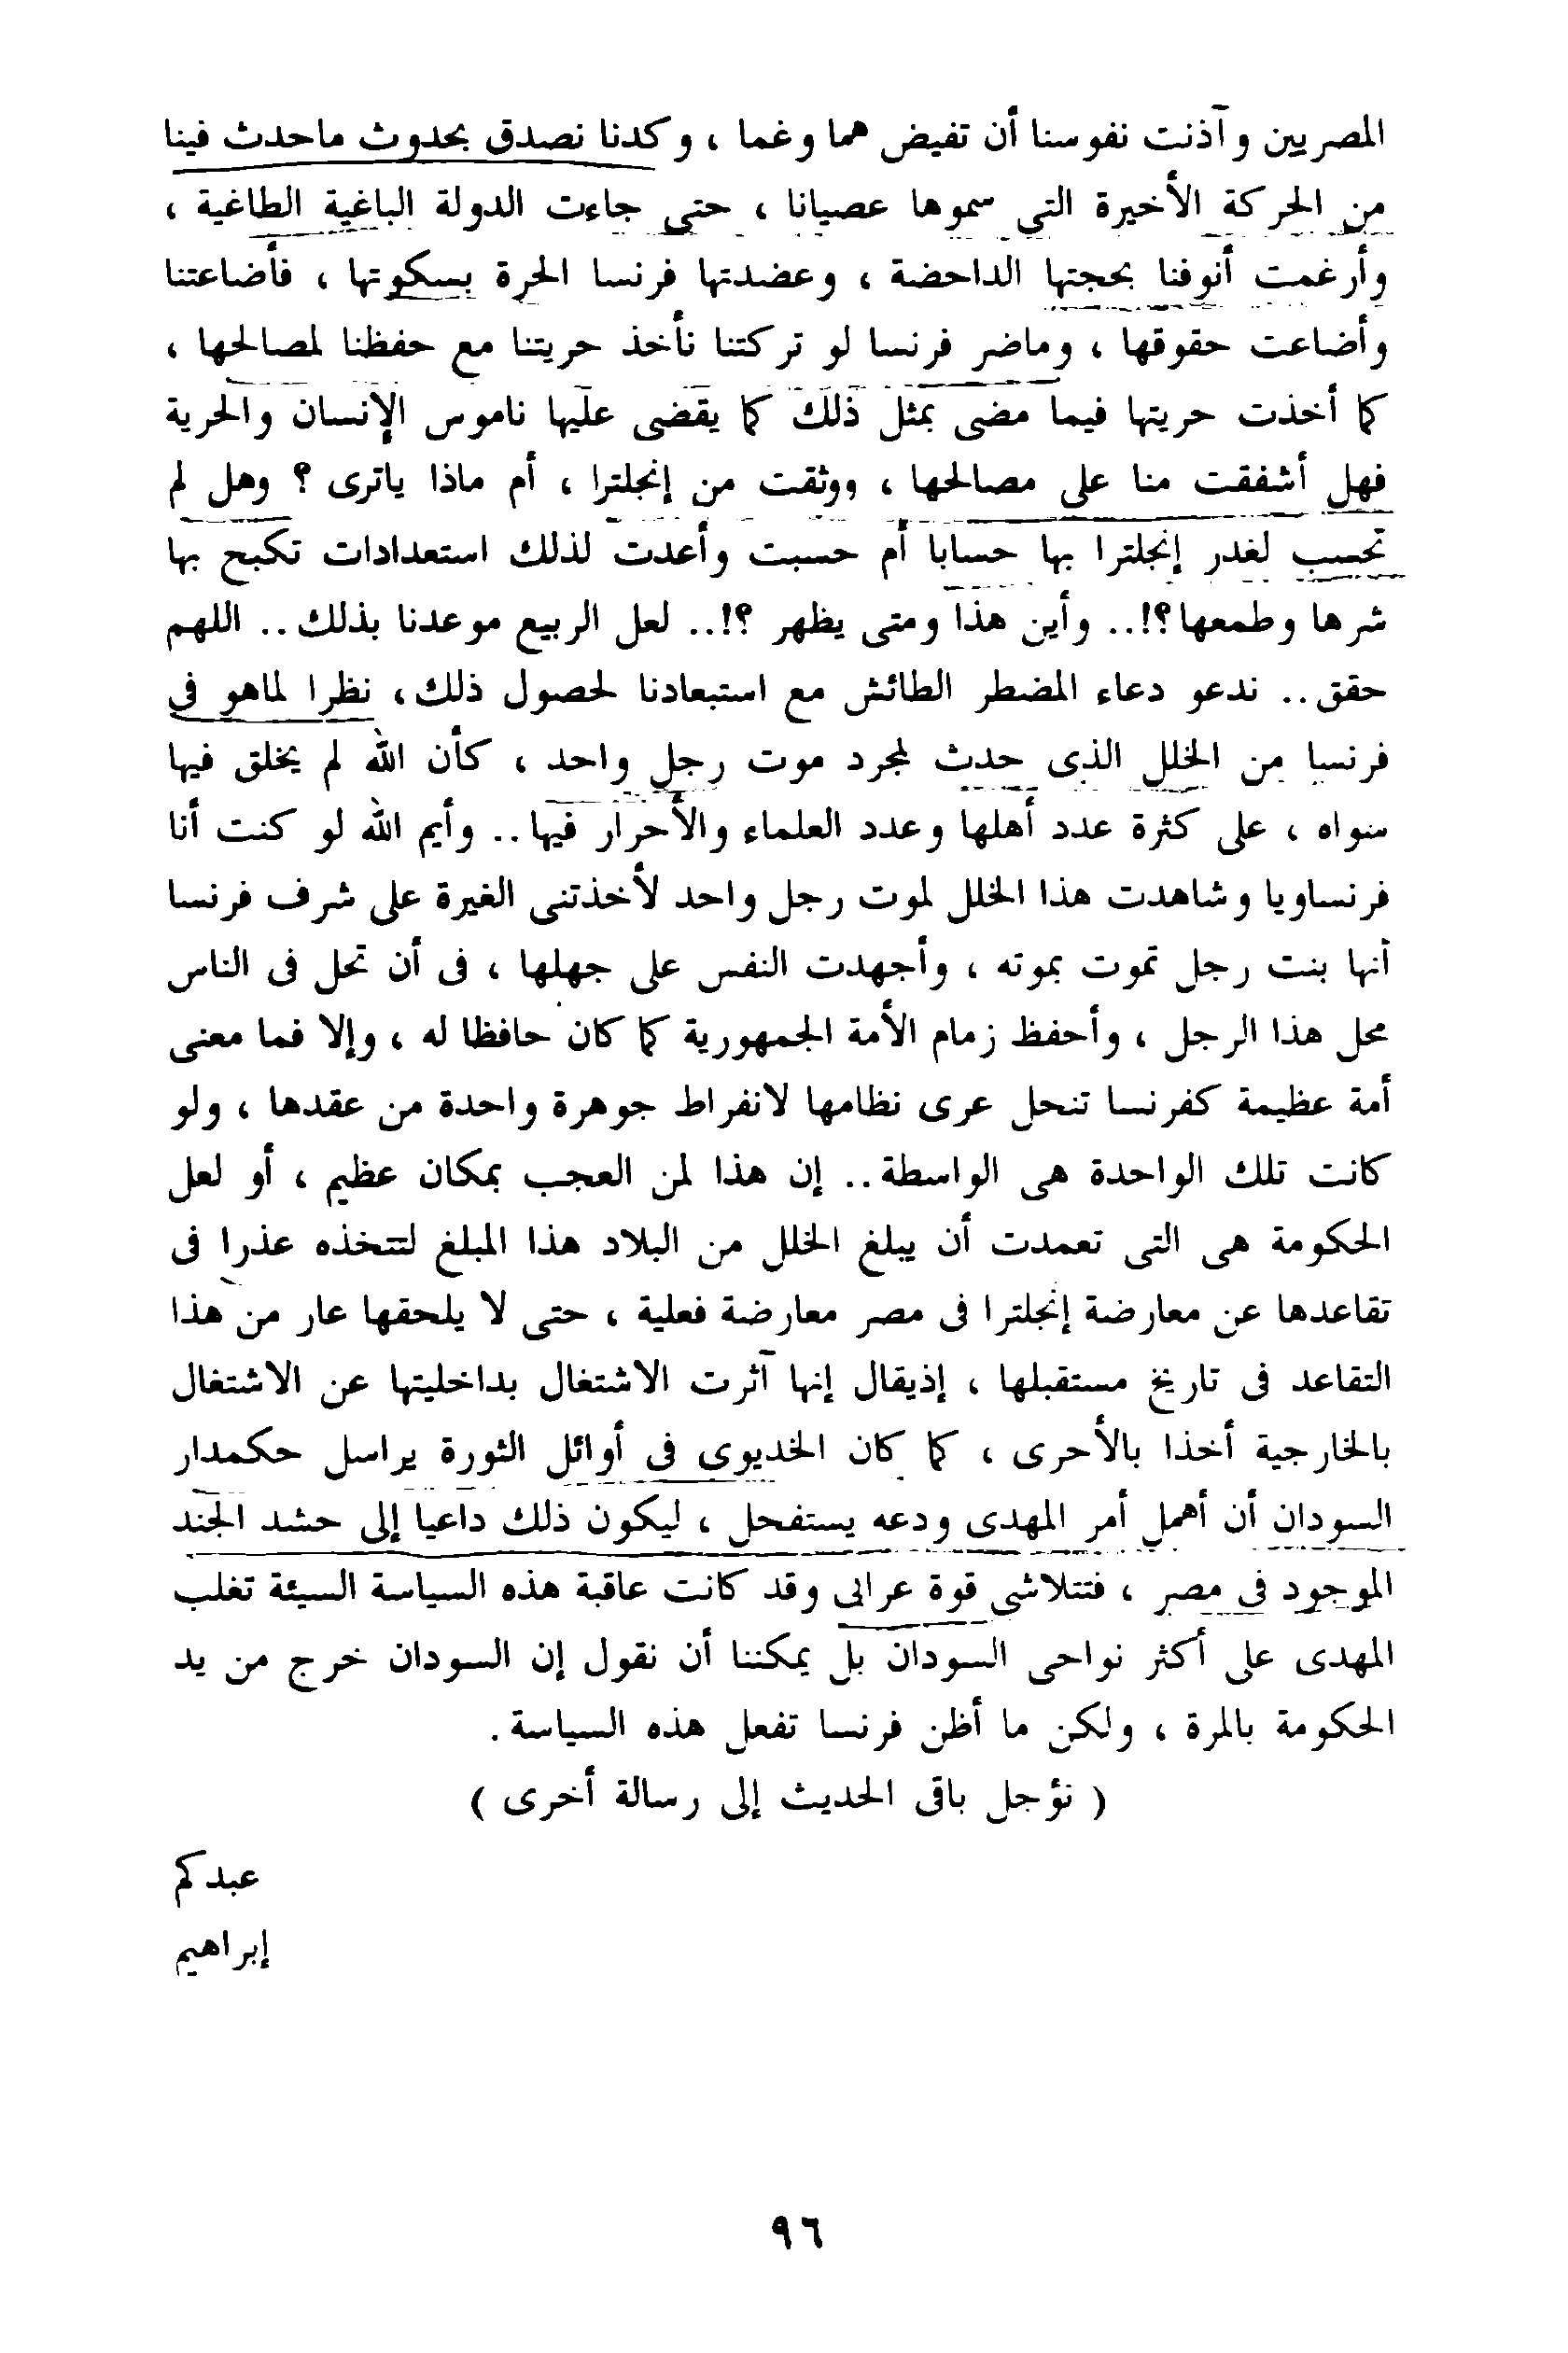 المصريين وآذنت نفوسنا أن تفيض هما وغما ، وكدنا نصدق بحدوث ماحدث فينا
من الحركة الأخيرة التى سموها عصيانا ، حتى جاءت الدولة الباغية الطاغية ،
وأرغمت أنوفنا بحجتها الداحضة ، وعضدتها فرنسا الحرة بسكوتها ، فأضاعتنا
وأضاعت حقوقها ، وماضر فرنسا لو تركتنا نأخذ حريتنا مع حفظنا لمصالحها ،
كما أخذت حريتها فيما مضى بمثل ذلك كما يقضى عليها ناموس الإنسان والحرية
فهل أشفقت منا على مصالحها ، ووثقت من إنجلترا ، أم ماذا ياترى ؟ وهل لم
تحسب لغدر إنجلترا بها حسابا أم حسبت وأعدت لذلك استعدادات تكبح بها
شرها وطمعها؟!.. وأين هذا ومتى يظهر ؟!.. لعل الربيع موعدنا بذلك .. اللهم
حقق .. ندعو دعاء المضطر الطائش مع استبعادنا لحصول ذلك ، نظرا لماهو فى
فرنسا من الخلل الذى حدث لمجرد موت رجل واحد ، كأن الله لم يخلق فيها
سواه ، على كثرة عدد أهلها وعدد العلماء والأحرار فيها .. وأيم الله لو كنت أنا
فرنساويا وشاهدت هذا الخلل لموت رجل واحد لأخذتنى الغيرة على شرف فرنسا
أنها بنت رجل تموت بموته ، وأجهدت النفس على جهلها ، فى أن تحل فى الناس
محل هذا الرجل ، وأحفظ زمام الأمة الجمهورية كما كان حافظا له ، وإلا فما معنى
أمة عظيمة كفرنسا تنحل عرى نظامها لانفراط جوهرة واحدة من عقدها ، ولو
كانت تلك الواحدة هى الواسطة .. إن هذا لمن العجب بمكان عظيم ، أو لعل
الحكومة هى التى تعمدت أن يبلغ الخلل من البلاد هذا المبلغ لتتخذه عذرا فى
تقاعدها عن معارضة إنجلترا فى مصر معارضة فعلية ، حتى لا يلحقها عار من هذا
التقاعد فى تاريخ مستقبلها ، إذيقال إنها آثرت الاشتغال بداخليتها عن الاشتغال
بالخارجية أخذا بالأحرى ، كما كان الخديوى فى أوائل الثورة يراسل حكمدار
السودان أن أهمل أمر المهدى ودعه يستفحل ، ليكون ذلك داعيا إلى حشد الجند
الموجود فى مصر ، فتتلاشى قوة عرابى وقد كانت عاقبة هذه السياسة السيئة تغلب
المهدى على أكثر نواحى السودان بل يمكننا أن نقول إن السودان خرج من يد
الحكومة بالمرة ، ولكن ما أظن فرنسا تفعل هذه السياسة .
( نؤجل باقى الحديث إلى رسالة أخرى )
عبدكم
إبراهيم
٩٦